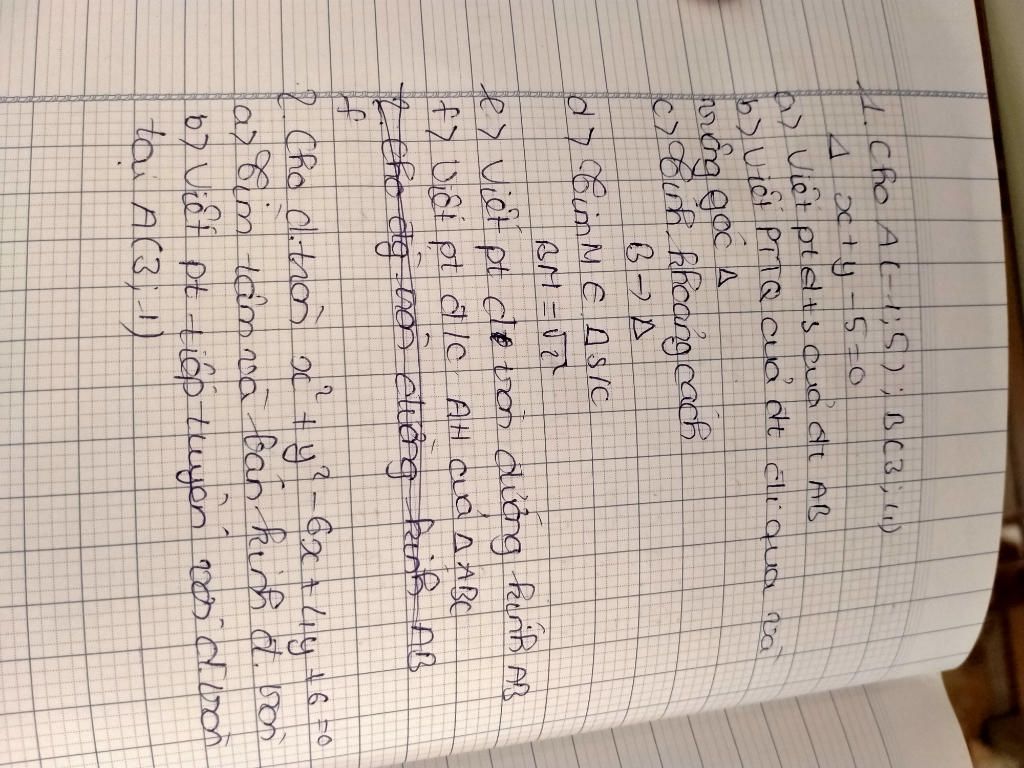 1. Cho A(-1;5); B(3;4)
Δ x+y-5=0
a> Viết ptđts của dt AB
b> Viết PTTQ của dt đi qua và
vuông góc Δ
c> Tính khoảng cách
B → Δ
d> Tìm M ∈ Δ S/C
BM = √2
e> Viết pt đ tròn đường kính AB
f> Viết pt đ/c AH của Δ ABC
2 Cho đg tròn đường kính AB
f
2. Cho đ.tròn x² + y² - 6x + 4y + 6 = 0
a> Tìm tâm và bán kính đ. tròn
b> Viết pt tiếp tuyến với đ tròn
tại A(3;-1)